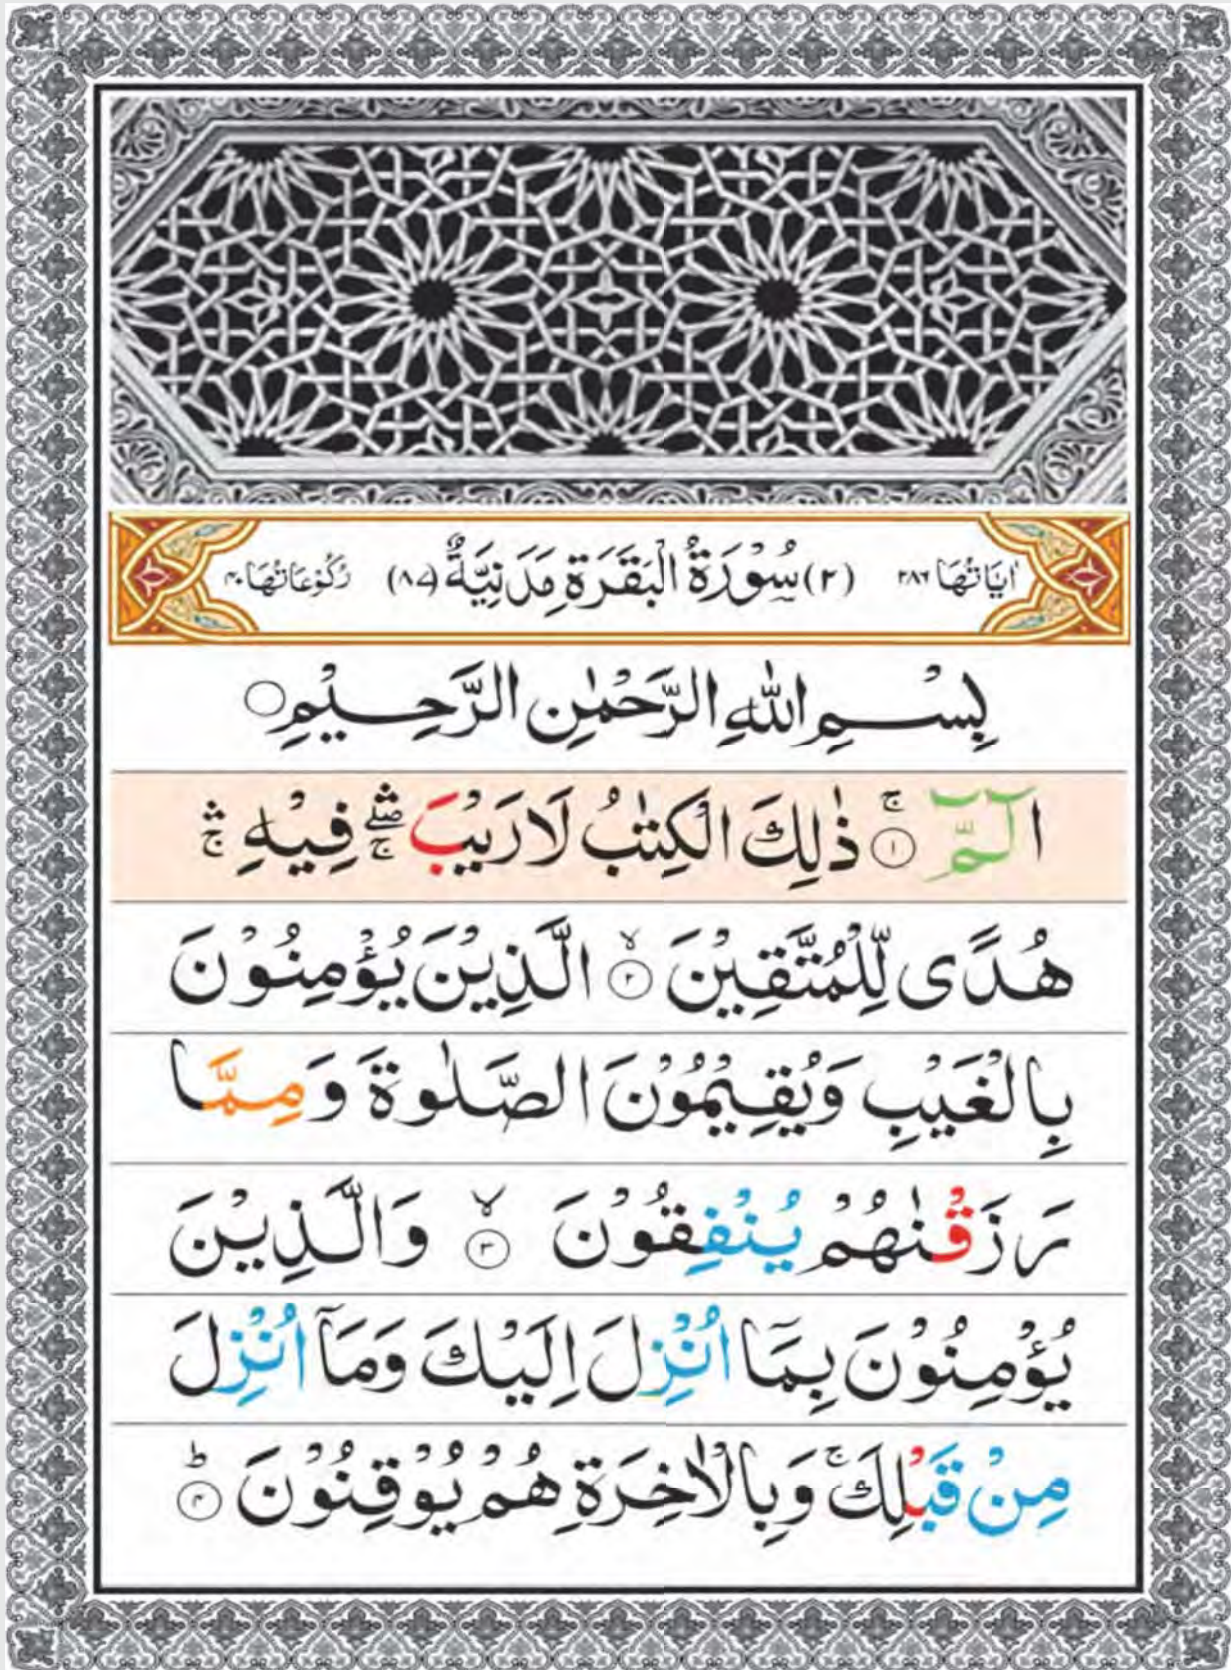 اٰيَاتُهَا ٢٨٦ (٢) سُوْرَةُ الْبَقَرَةِ مَدَنِيَّةٌ (٨٧) رُكُوْعَاتُهَا ٤٠
بِسْمِ اللّٰهِ الرَّحْمٰنِ الرَّحِيْمِ ○
الٓمّٓ ۚ ١ ذٰلِكَ الْكِتٰبُ لَا رَيْبَ ۛۖۚ فِيْهِ ۛۚ
هُدًى لِّلْمُتَّقِيْنَ ۙ ٢ الَّذِيْنَ يُؤْمِنُوْنَ
بِالْغَيْبِ وَيُقِيْمُوْنَ الصَّلٰوةَ وَمِمَّا
رَزَقْنٰهُمْ يُنْفِقُوْنَ ۙ ٣ وَالَّذِيْنَ
يُؤْمِنُوْنَ بِمَآ اُنْزِلَ اِلَيْكَ وَمَآ اُنْزِلَ
مِنْ قَبْلِكَ ۚ وَبِالْاٰخِرَةِ هُمْ يُوْقِنُوْنَ ؕ ٤